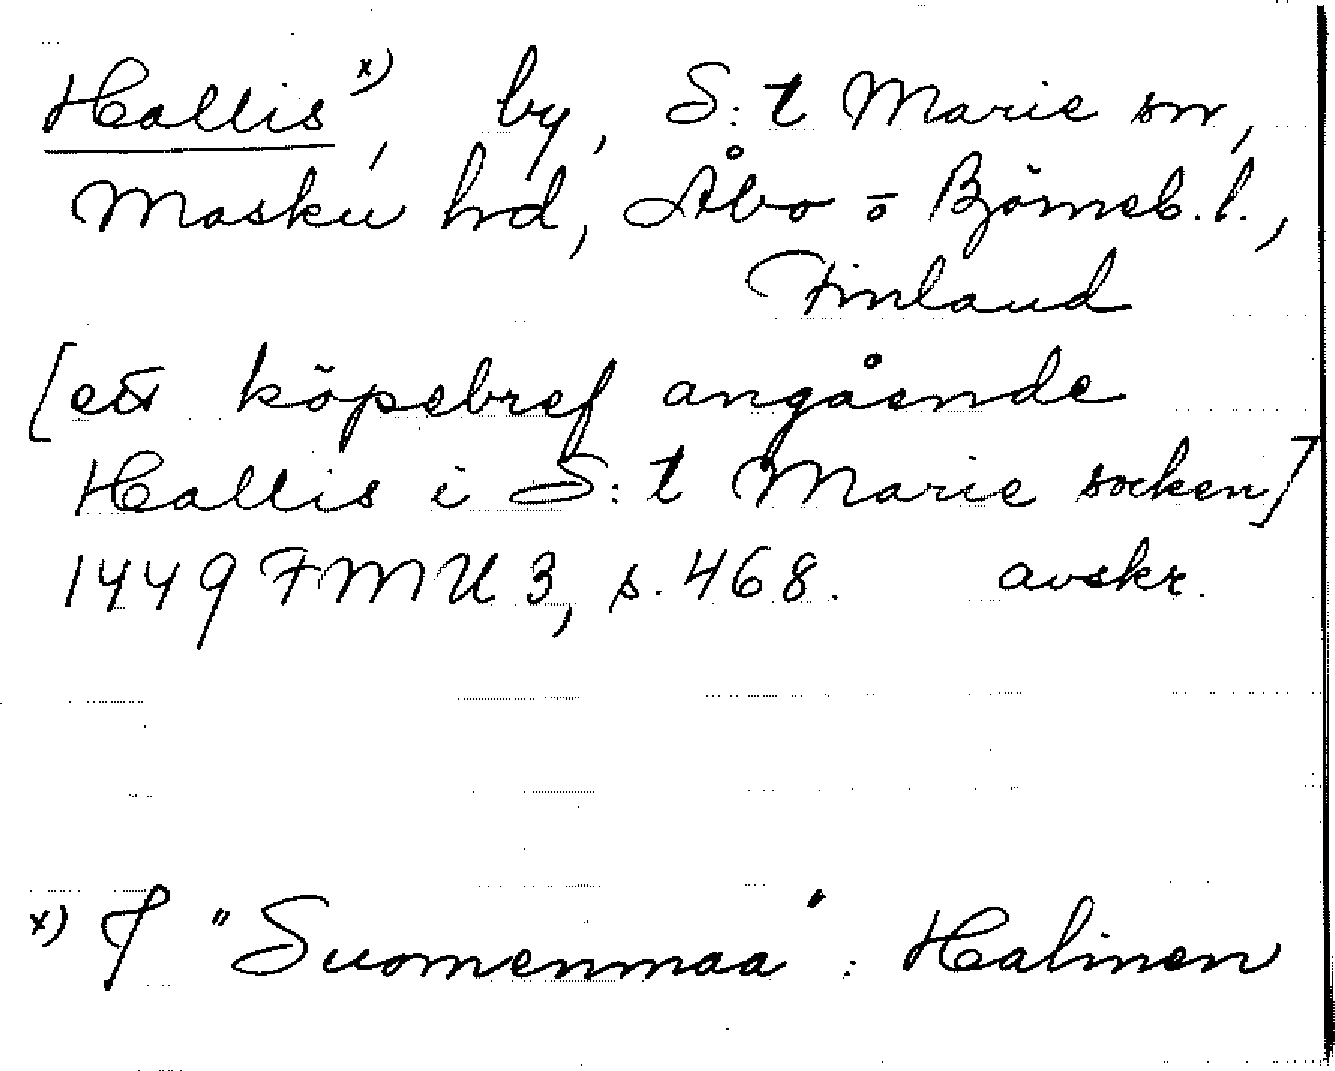 Hallis x), by, S:t Marie sn,
Masku hd, Åbo o Björneb. l.,
Finland
[ett köpebref angående
Hallis i S:t Marie socken]
1449 FMU 3, s. 468. avskr.
x) I "Suomenmaa": Halinen